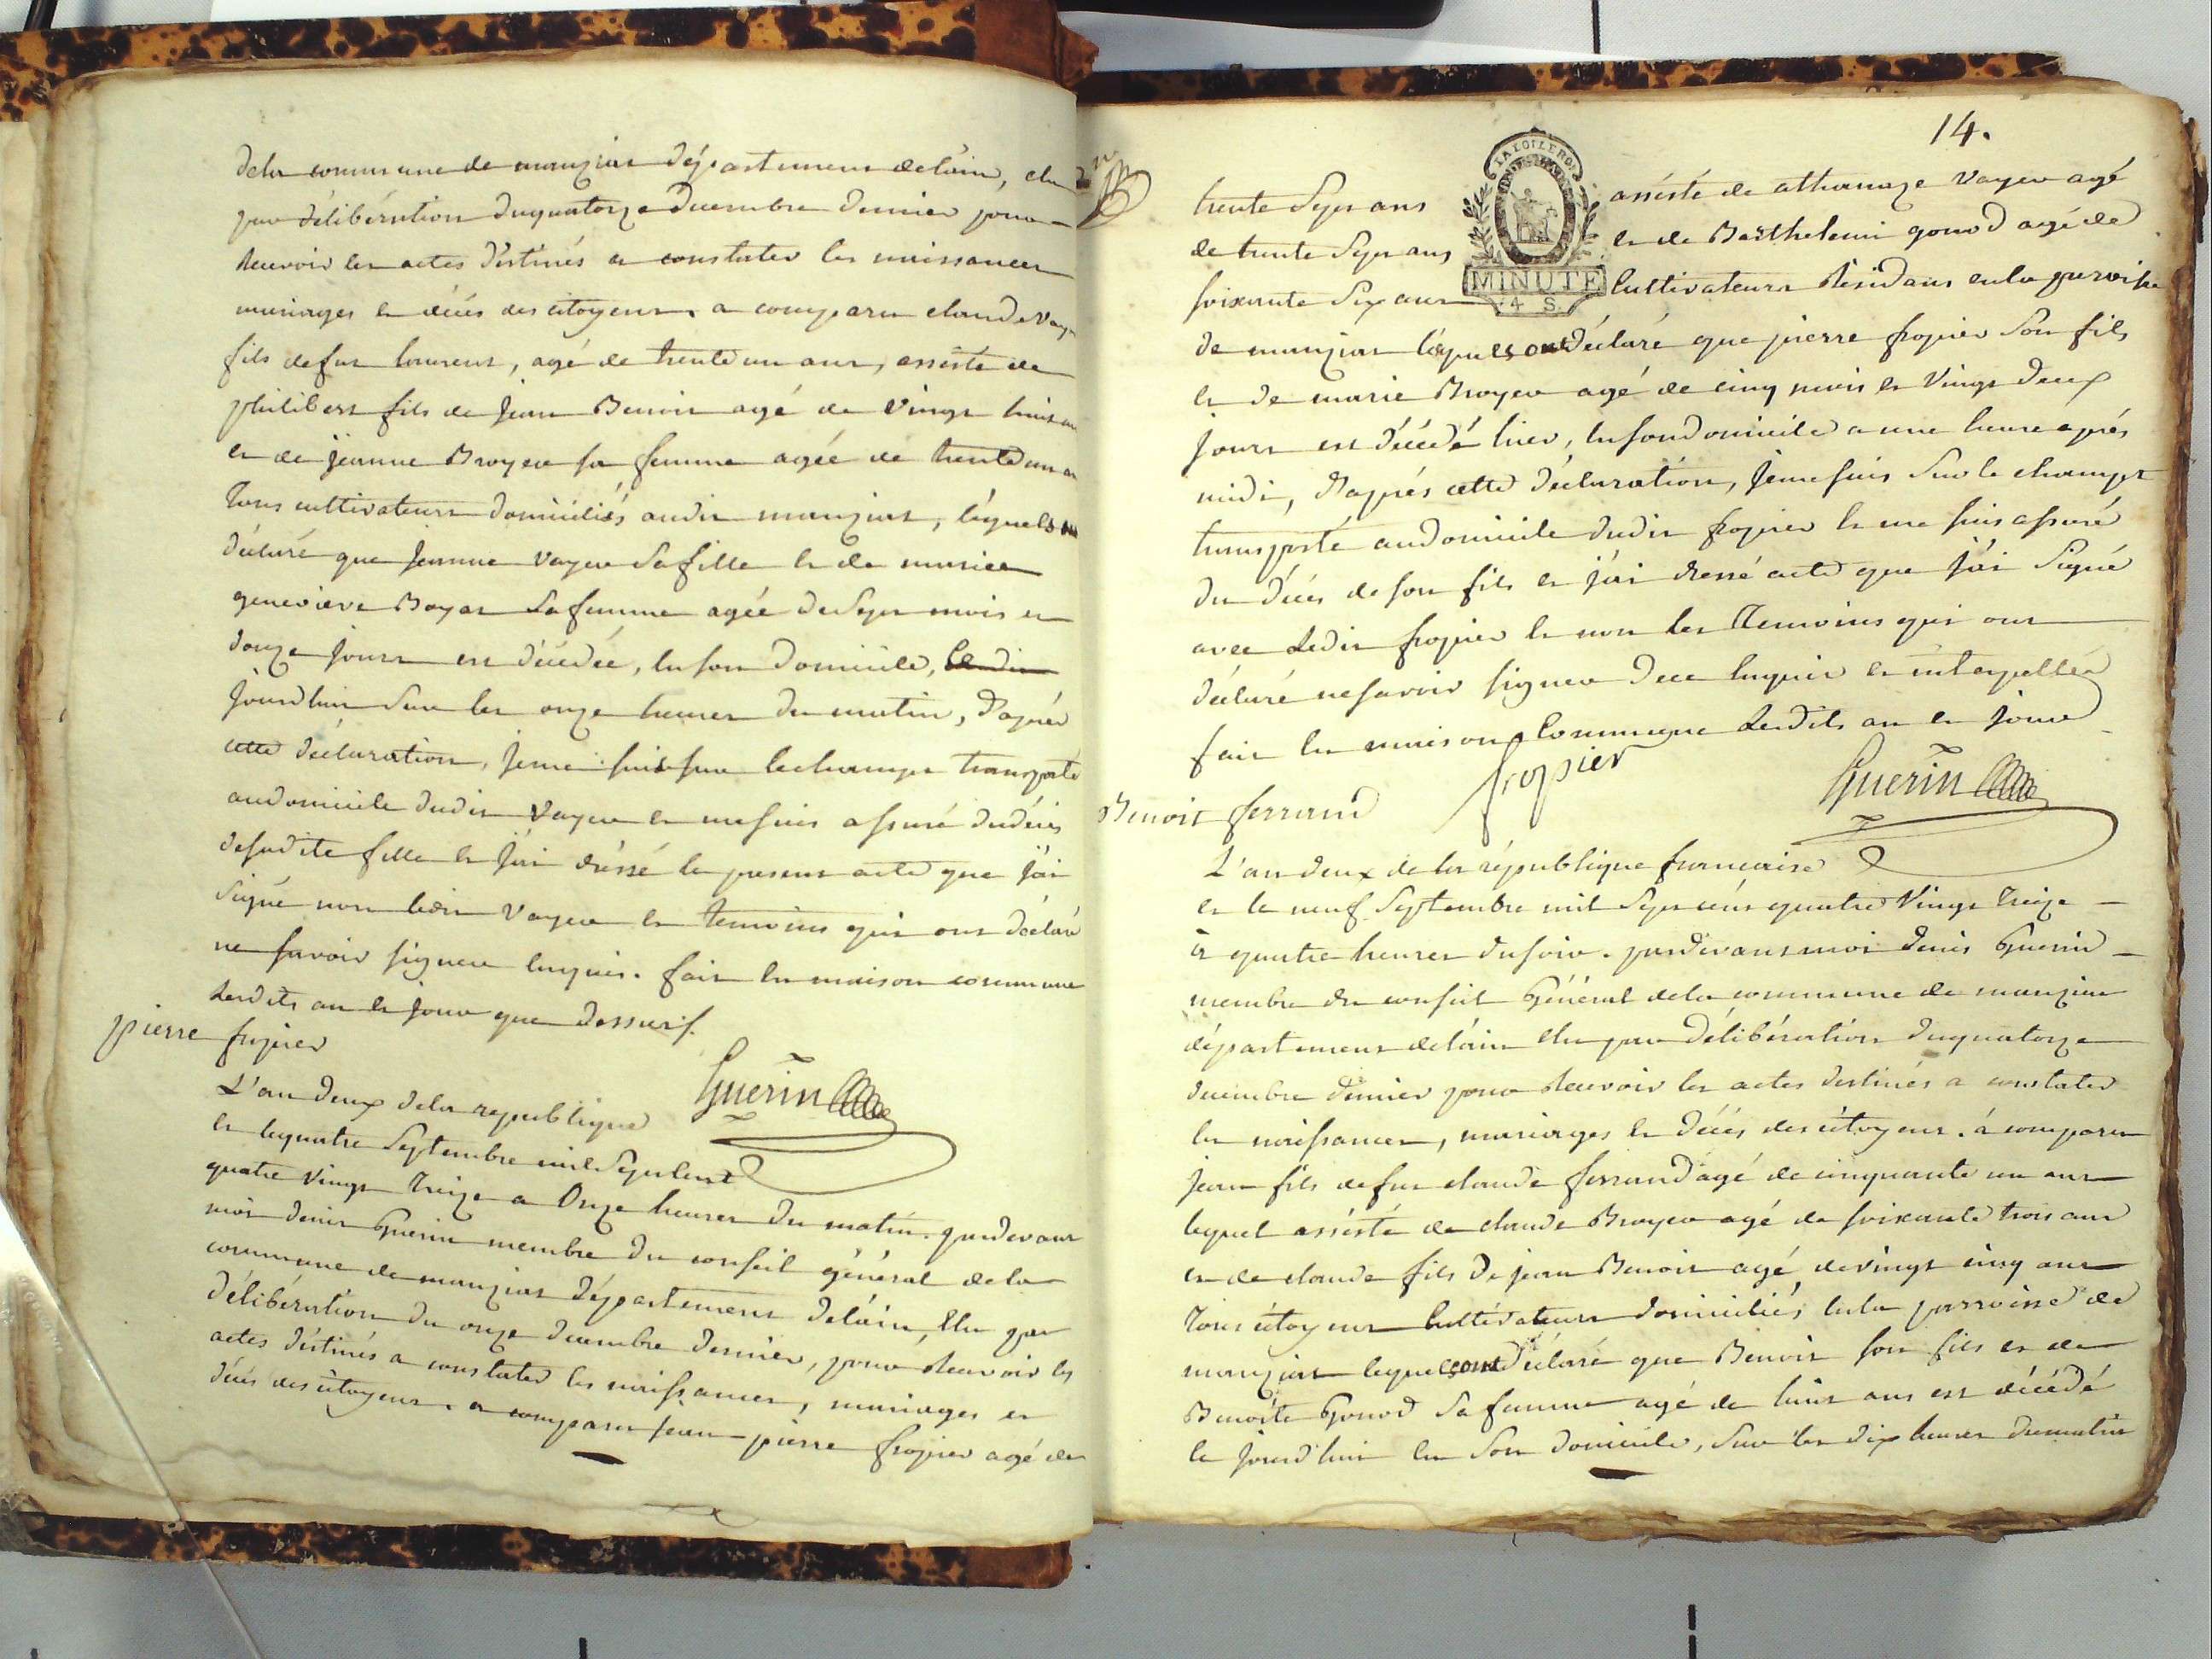 dela commune de manziat département delain, elu
par délibération duquatorze decembre dernier pour
recevoir les actes déstinés a constater les naissances
mariages et décés des citoyens. a comparu claude Voye
fils defut laurent, agé de trente un ans, assisté de
philibert fils de jean Benoit agé de vingt huit an
et de jeanne Broyer sa femme agée de trente un an
Tous cultivateurs domiciliés audit manziat, léquels on
déclaré que jeanne Voyer sa fille et de marie
genevieve Boyat sa femme agée de sept mois et
douze jours est décédée, en son domicile, le dit
jourdhui sur les onze heures du matin, d'après
cette déclaration, je me suis sur le champt transporté
au domicile dudit Voyer et me suis assuré du décés
desadite fille et j'ai dréssé le present acte que j'ai
signé non ledit Voyer et temoins qui ont déclaré
ne savoir signer enquis. fait en maison commune
lesdits an et jour que dessus.
pierre fropier
Guerin
L'an deux dela republique
et lequatre Septembre mil Sept cent
quatre vingt treize a onze heures du matin. pardevant
moi denis Guerin membre du conseil général dela
commune de manziat département delain, elu par
délibération du onze decembre dernier, pour recevoir les
actes déstinés a constater les naissances, mariages et
décés des citoyens. a comparu jean pierre fropier agé de
14.
LA LOI LE ROI
MINUTE
4 S.
trente Sept ans assisté de athanaze Voyer agé
de trente Sept ans et de Barthelemi gonod agé de
soixante Six ans Cultivateurs résidans en la paroisse
de manziat léquels ont déclaré que pierre fropier Son fils
et de marie Broyer agé de cinq mois et Vingt deux
jours est décédé hier, en son domicile a une heure après
midi, d'après cette déclaration, je me suis Sur le champt
transporté au domicile dudit fropier et me suis assuré
du décés de son fils et j'ai dressé acte que j'ai Signé
avec ledit fropier et non les Temoins qui ont
déclaré ne savoir signer de ce enquis et interpellés
fait en maison Commune lesdits an et jour
fropier
Guerin
Benoit ferrand
L'an deux de la république francaise
et le neuf Septembre mil Sept cent quatre Vingt treize
à quatre heures du soir. pardevant moi denis Guerin
membre du conseil Général dela commune de manziat
département delain elu par délibération duquatorze
decembre dernier pour recevoir les actes destinés a constater
les naissances, mariages et décés des citoyens. à comparu
jean fils de fut claude ferrand agé de cinquante un ans
lequel assisté de claude Broyer agé de soixante trois ans
et de claude fils de jean Benoit agé de vingt cinq ans
Tous citoyens Cultivateurs domiciliés en la parroisse de
manziat lequels ont déclaré que Benoit son fils et de
Benoite Gonod Sa femme agé de huit ans est décédé
le jourd'hui en Son domicile, Sur les dix heures du matin